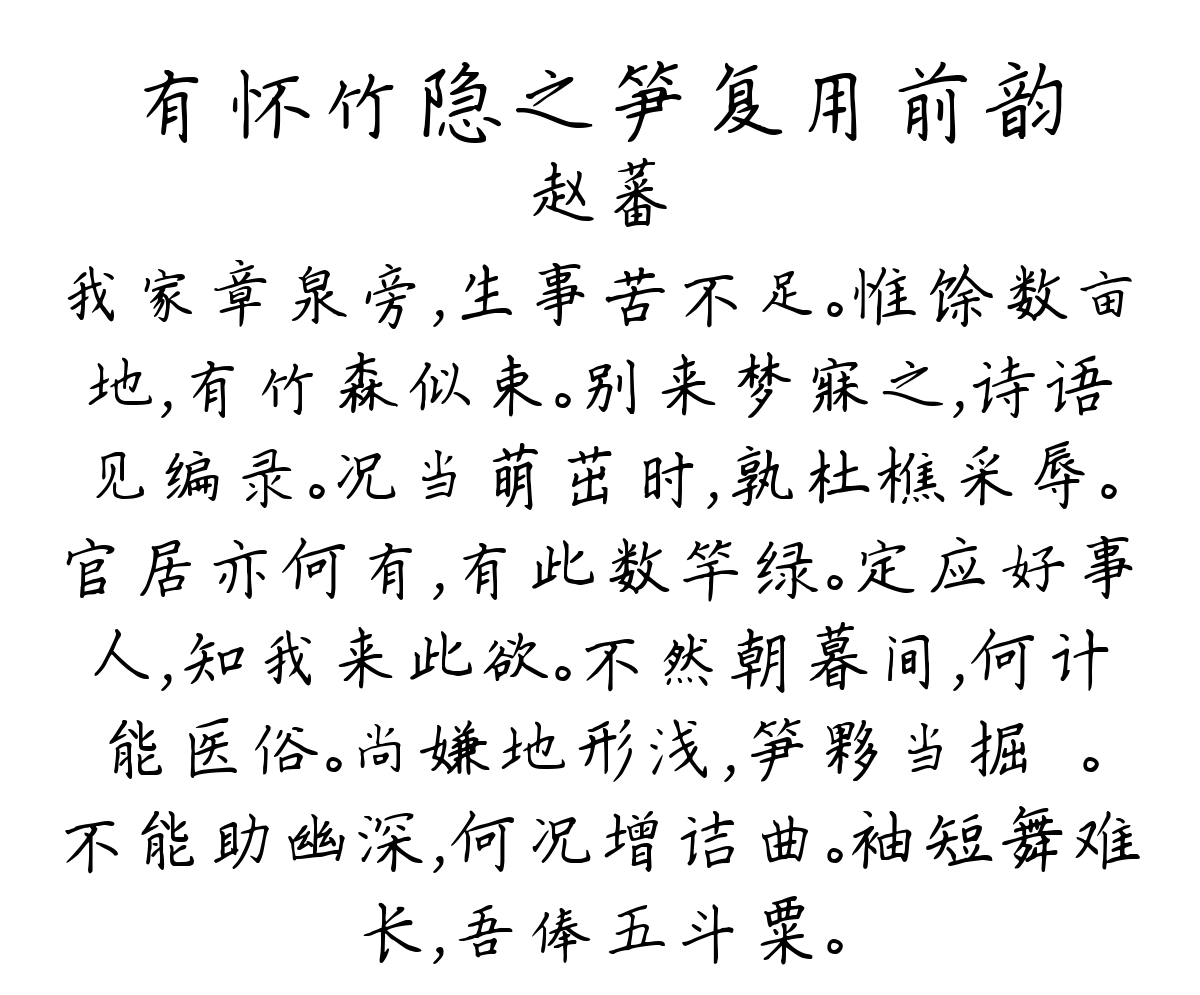 有怀竹隐之笋复用前韵
赵蕃
我家章泉旁,生事苦不足。惟馀数亩
地,有竹森似束。别来梦寐之,诗语
见编录。况当萌茁时,孰杜樵采辱。
官居亦何有,有此数竿绿。定应好事
人,知我来此欲。不然朝暮间,何计
能医俗。尚嫌地形浅,笋夥当掘 。
不能助幽深,何况增诘曲。袖短舞难
长,吾俸五斗粟。